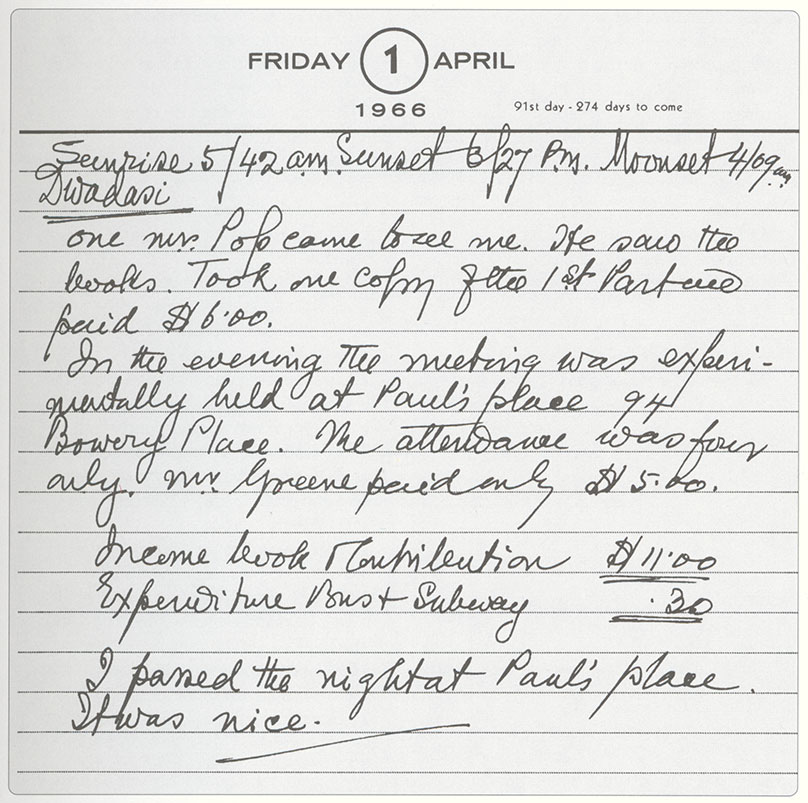 FRIDAY 1 APRIL
1966
91st day - 274 days to come
Sunrise 5/42 a.m. Sunset 6/27 P.m. Moonset 4/09 am
Dwadasi
one mr. Pop came to see me. He saw the
books. Took one copy of the 1st Part and
paid $6.00.
In the evening the meeting was experi-
mentally held at Paul's place 94
Bowery Place. The attendance was four
only. Mr. Greene paid only $5.00.
Income book & Contribution $11.00
Expenditure Bus + Subway .30
I passed the night at Paul's place.
It was nice.